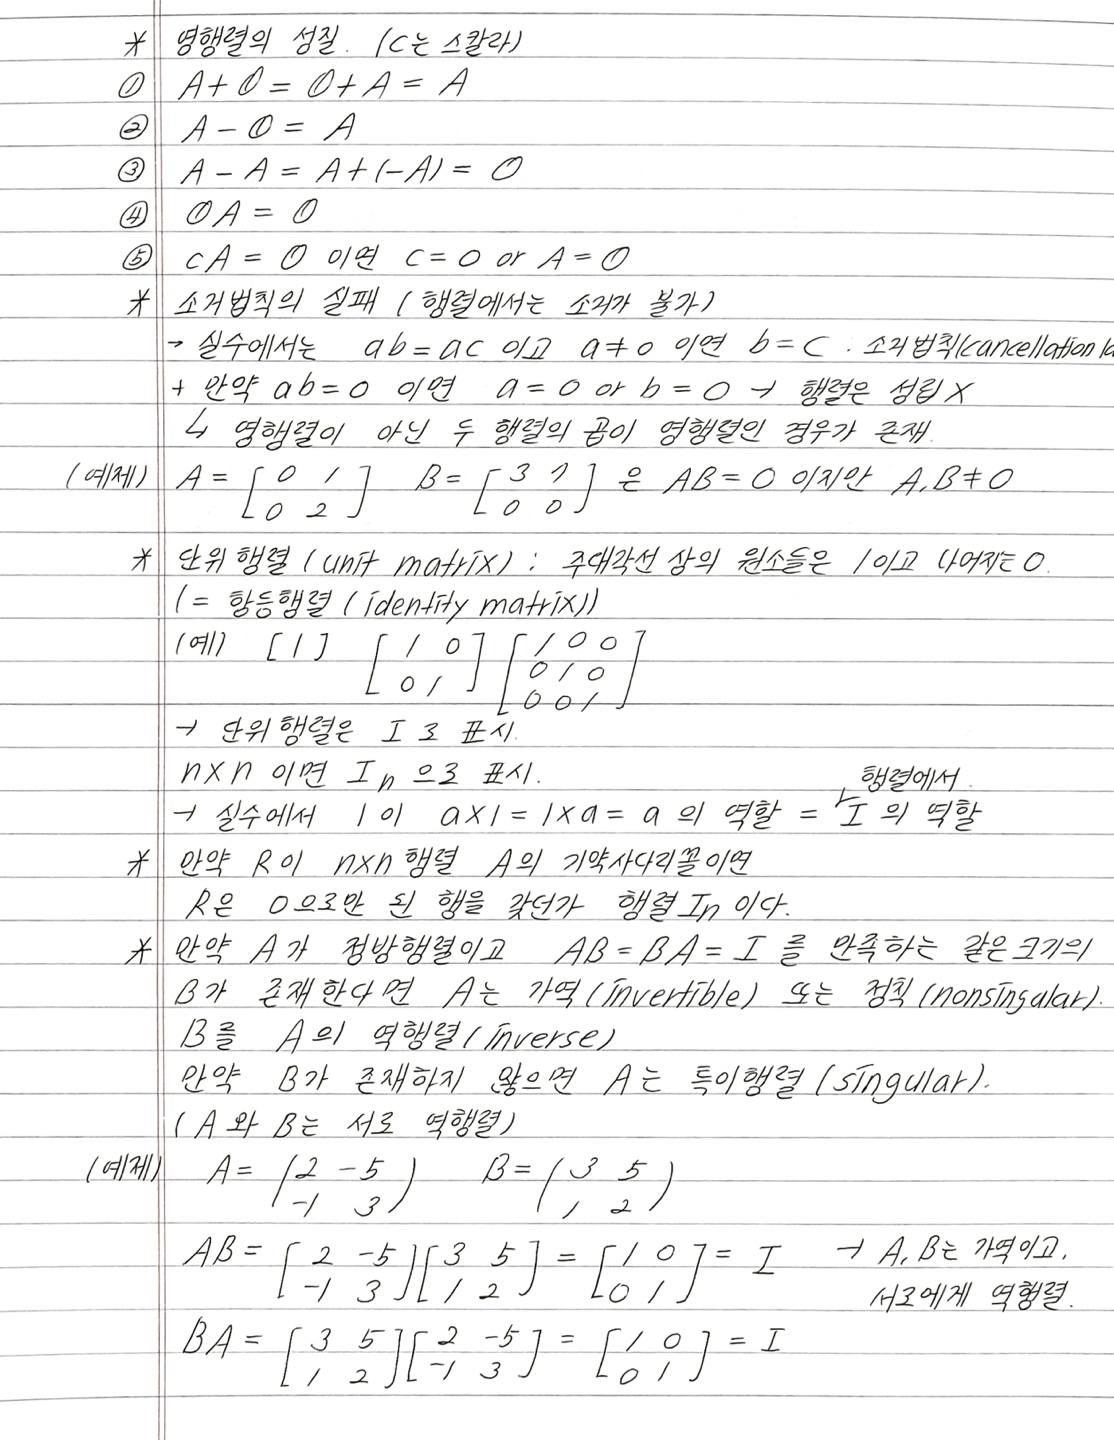 * 영행렬의 성질. (c는 스칼라)
① A+O = O+A = A
② A-O = A
③ A-A = A+(-A) = O
④ OA = O
⑤ cA = O 이면 c=0 or A=O
* 소거법칙의 실패 (행렬에서는 소거가 불가)
→ 실수에서는 ab=ac 이고 a≠0 이면 b=c. 소거법칙(cancellation la
+ 만약 ab=0 이면 a=0 or b=0 → 행렬은 성립 X
↳ 영행렬이 아닌 두 행렬의 곱이 영행렬인 경우가 존재.
(예제) A = [0 1 B = [3 7 은 AB=0 이지만 A,B≠0
0 2] 0 0]
* 단위행렬 (unit matrix) : 주대각선 상의 원소들은 1이고 나머지는 0.
(= 항등행렬 (identity matrix))
(예) [1] [1 0 [1 0 0
0 1] 0 1 0
0 0 1]
→ 단위행렬은 I로 표시.
n×n 이면 Iₙ으로 표시.
행렬에서.
→ 실수에서 1이 a×1 = 1×a = a 의 역할 = I 의 역할
* 만약 R이 n×n행렬 A의 기약사다리꼴이면
R은 0으로만 된 행을 갖던가 행렬 Iₙ이다.
* 만약 A가 정방행렬이고 AB=BA=I를 만족하는 같은 크기의
B가 존재한다면 A는 가역(invertible) 또는 정칙(nonsingular).
B를 A의 역행렬(inverse)
만약 B가 존재하지 않으면 A는 특이행렬(singular).
(A와 B는 서로 역행렬)
(예제) A = (2 -5 B = (3 5
-1 3) 1 2)
AB = [2 -5 [3 5 = [1 0 = I → A,B는 가역이고,
-1 3] 1 2] 0 1] 서로에게 역행렬.
BA = [3 5 [2 -5 = [1 0 = I
1 2] -1 3] 0 1]